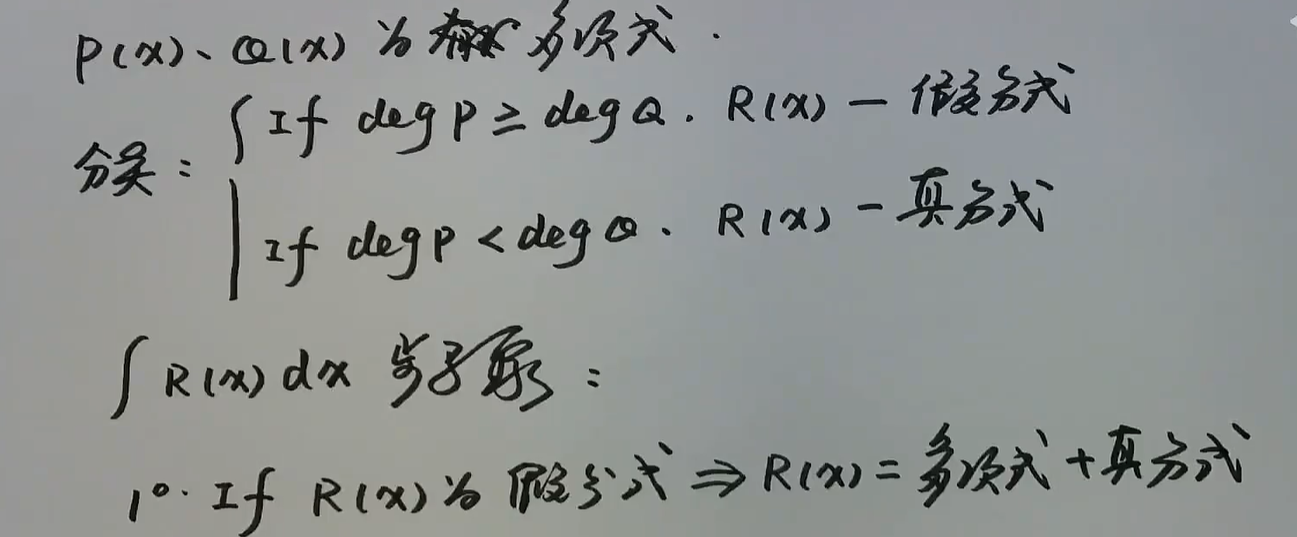 P(x)、Q(x) 为 多项式.
分类: { If deg P ≥ deg Q. R(x) — 假分式
If deg P < deg Q. R(x) — 真分式
∫ R(x) dx 步骤:
1°. If R(x) 为 假分式 ⇒ R(x) = 多项式 + 真分式